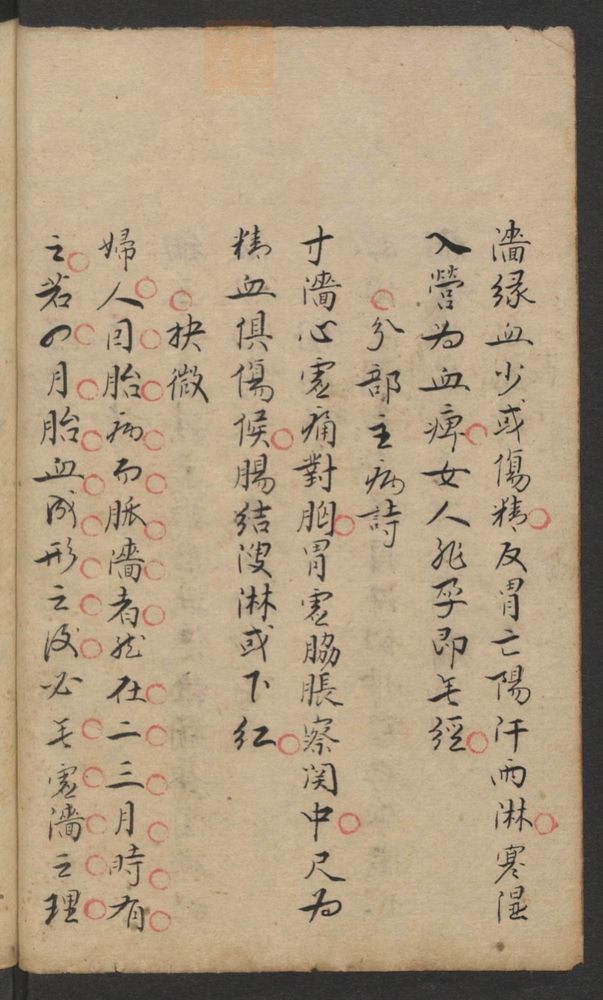 濇緣血少或傷精反胃亡陽汗雨淋寒濕
入營為血痺女人非孕即無經
分部主病詩
寸濇心虛痛對胸胃虛脇脹察関中尺为
精血俱傷候腸結溲淋或下紅
抉微
婦人因胎病而脈濇者然在二三月時有
之若四月胎血成形之後必無虛濇之理